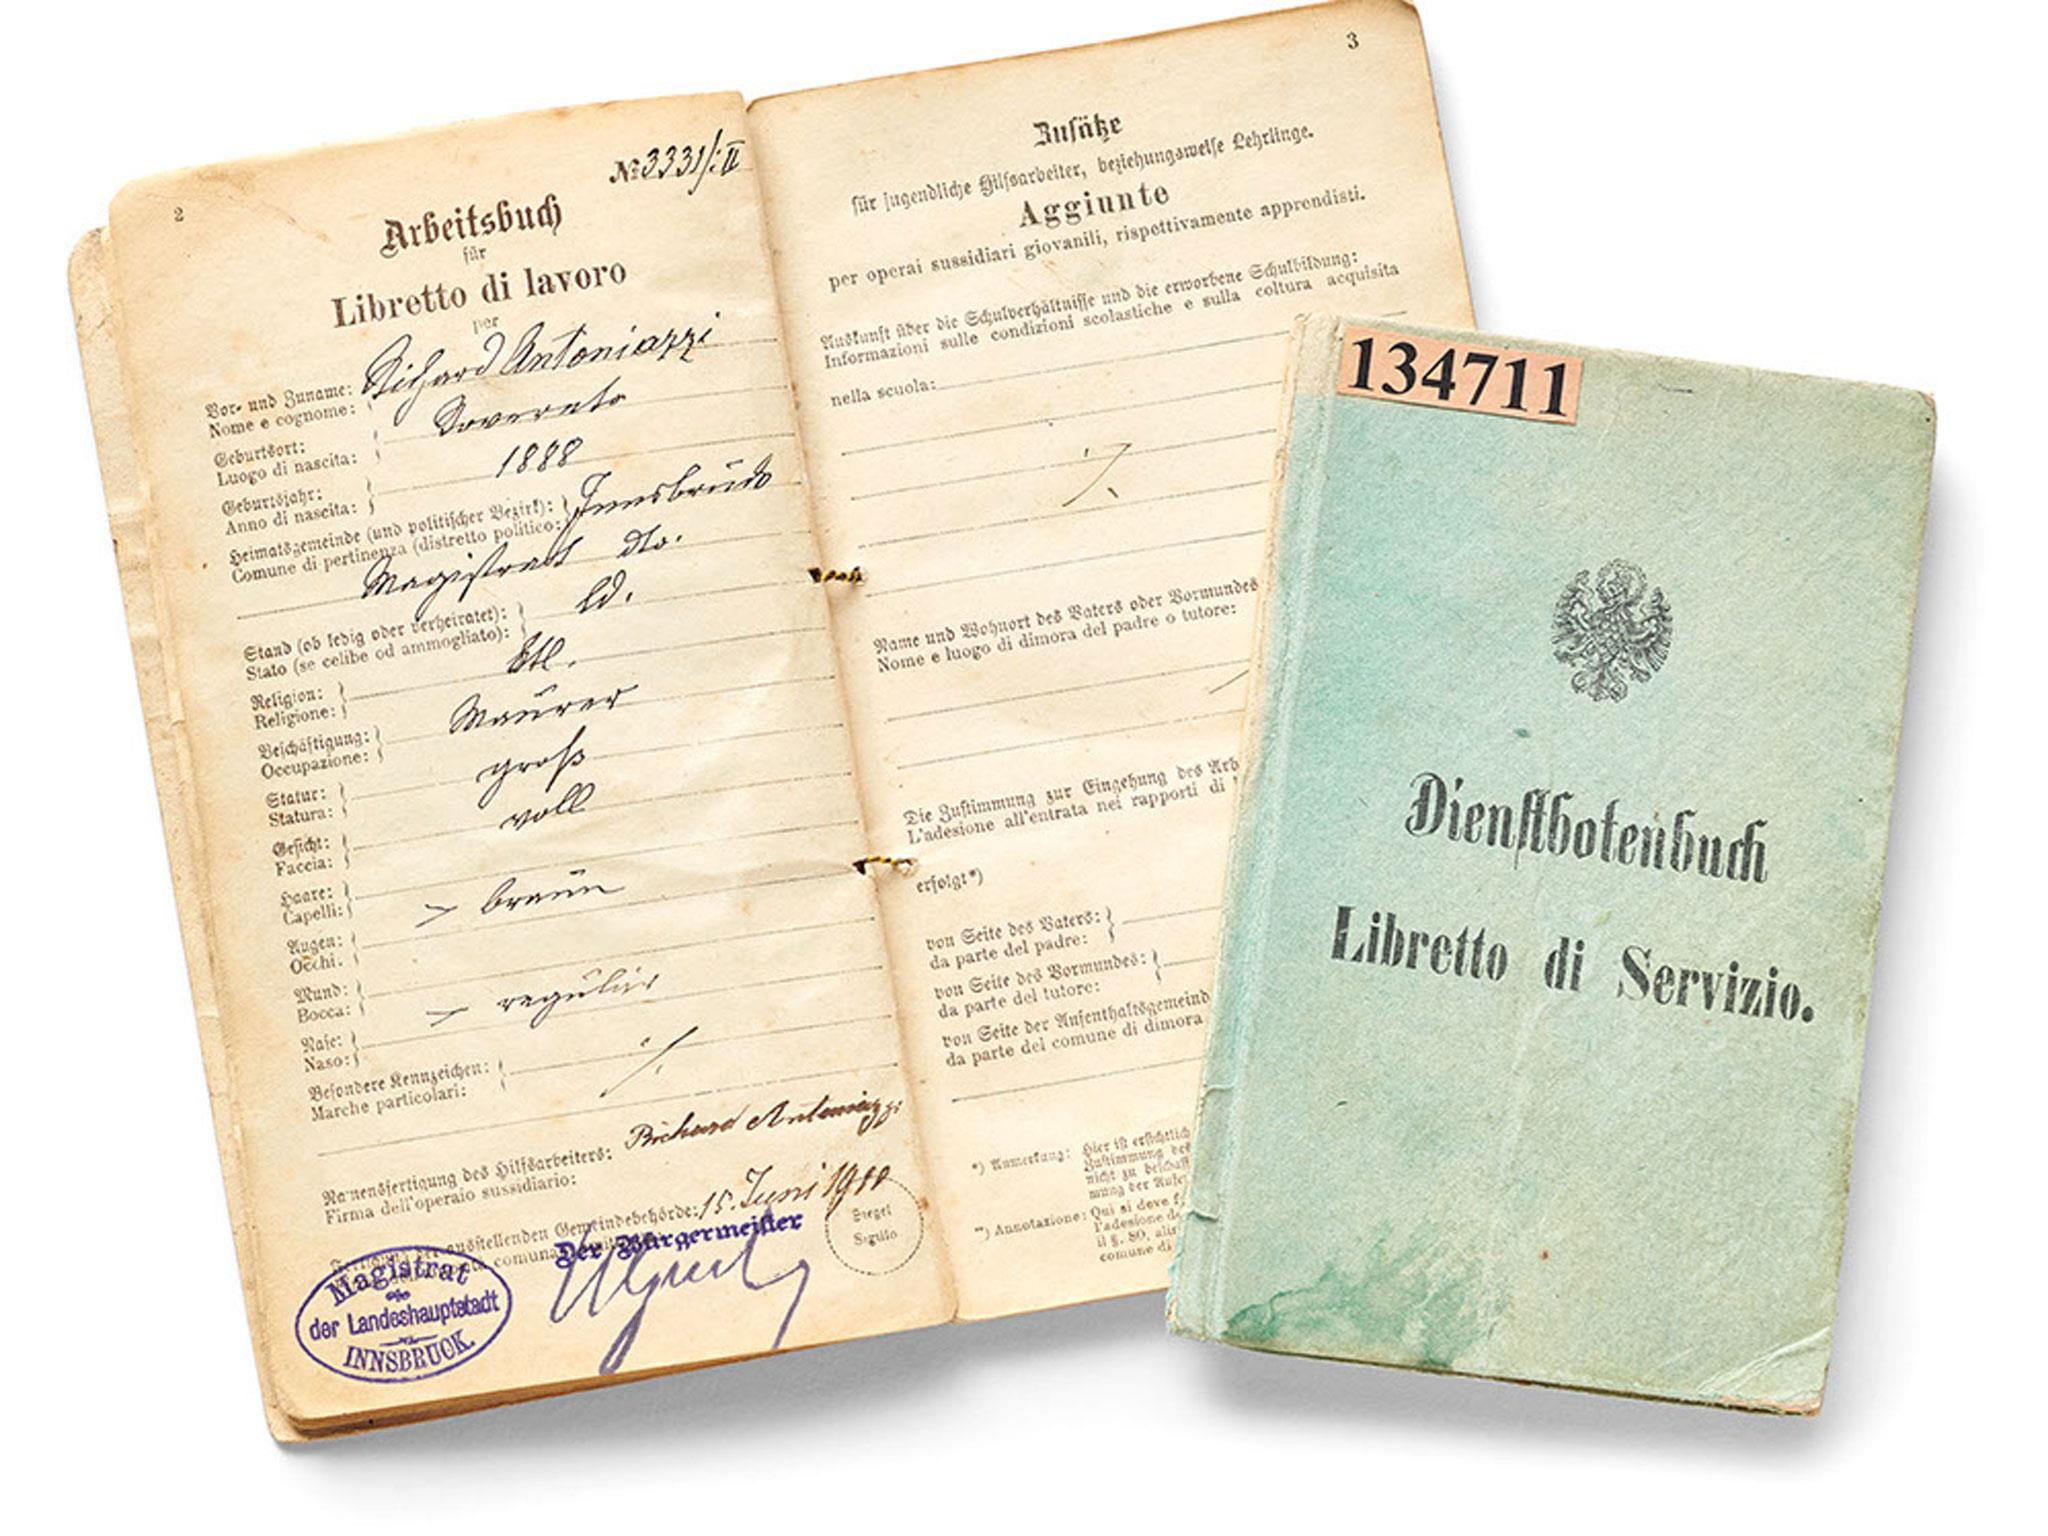 2
№ 3331/:II
Arbeitsbuch
für
Libretto di lavoro
per
Vor- und Zuname:
Nome e cognome:
Richard Antoniazzi
Geburtsort:
Luogo di nascita:
Geburtsjahr:
Anno di nascita:
1888
Heimatsgemeinde (und politischer Bezirk):
Comune di pertinenza (distretto politico:
Innsbruck
Magistrat dto.
Stand (ob ledig oder verheiratet):
Stato (se celibe od ammogliato):
ld.
Religion:
Religione:
Beschäftigung:
Occupazione:
Maurer
Statur:
Statura:
groß
Gesicht:
Faccia:
voll
Haare:
Capelli:
Augen:
Occhi:
braun
Mund:
Bocca:
Nase:
Naso:
regulär
Besondere Kennzeichen:
Marche particolari:
./.
Namensfertigung des Hilfsarbeiters:
Firma dell'operaio sussidiario:
Richard Antoniazzi
ausstellenden Gemeindebehörde:
15. Juni 1910
Der Bürgermeister
Siegel
Sigillo
Magistrat
der Landeshauptstadt
INNSBRUCK.
3
Zusätze
für jugendliche Hilfsarbeiter, beziehungsweise Lehrlinge.
Aggiunte
per operai sussidiari giovanili, rispettivamente apprendisti.
Auskunft über die Schulverhältnisse und die erworbene Schulbildung:
Informazioni sulle condizioni scolastiche e sulla coltura acquisita
nella scuola:
./.
Name und Wohnort des Vaters oder Vormundes
Nome e luogo di dimora del padre o tutore:
Die Zustimmung zur Eingehung des Arb
L'adesione all'entrata nei rapporti di
erfolgt*)
von Seite des Vaters:
da parte del padre:
von Seite des Vormundes:
da parte del tutore:
von Seite der Aufenthaltsgemeind
da parte del comune di dimora
*) Anmerkung: Hier ist ersichtlich
Zustimmung des
nicht zu beschaff
mung der Aufen
*) Annotazione: Qui si deve
l'adesione de
il §. 80, alin
comune di
134711
Dienstbotenbuch
Libretto di Servizio.